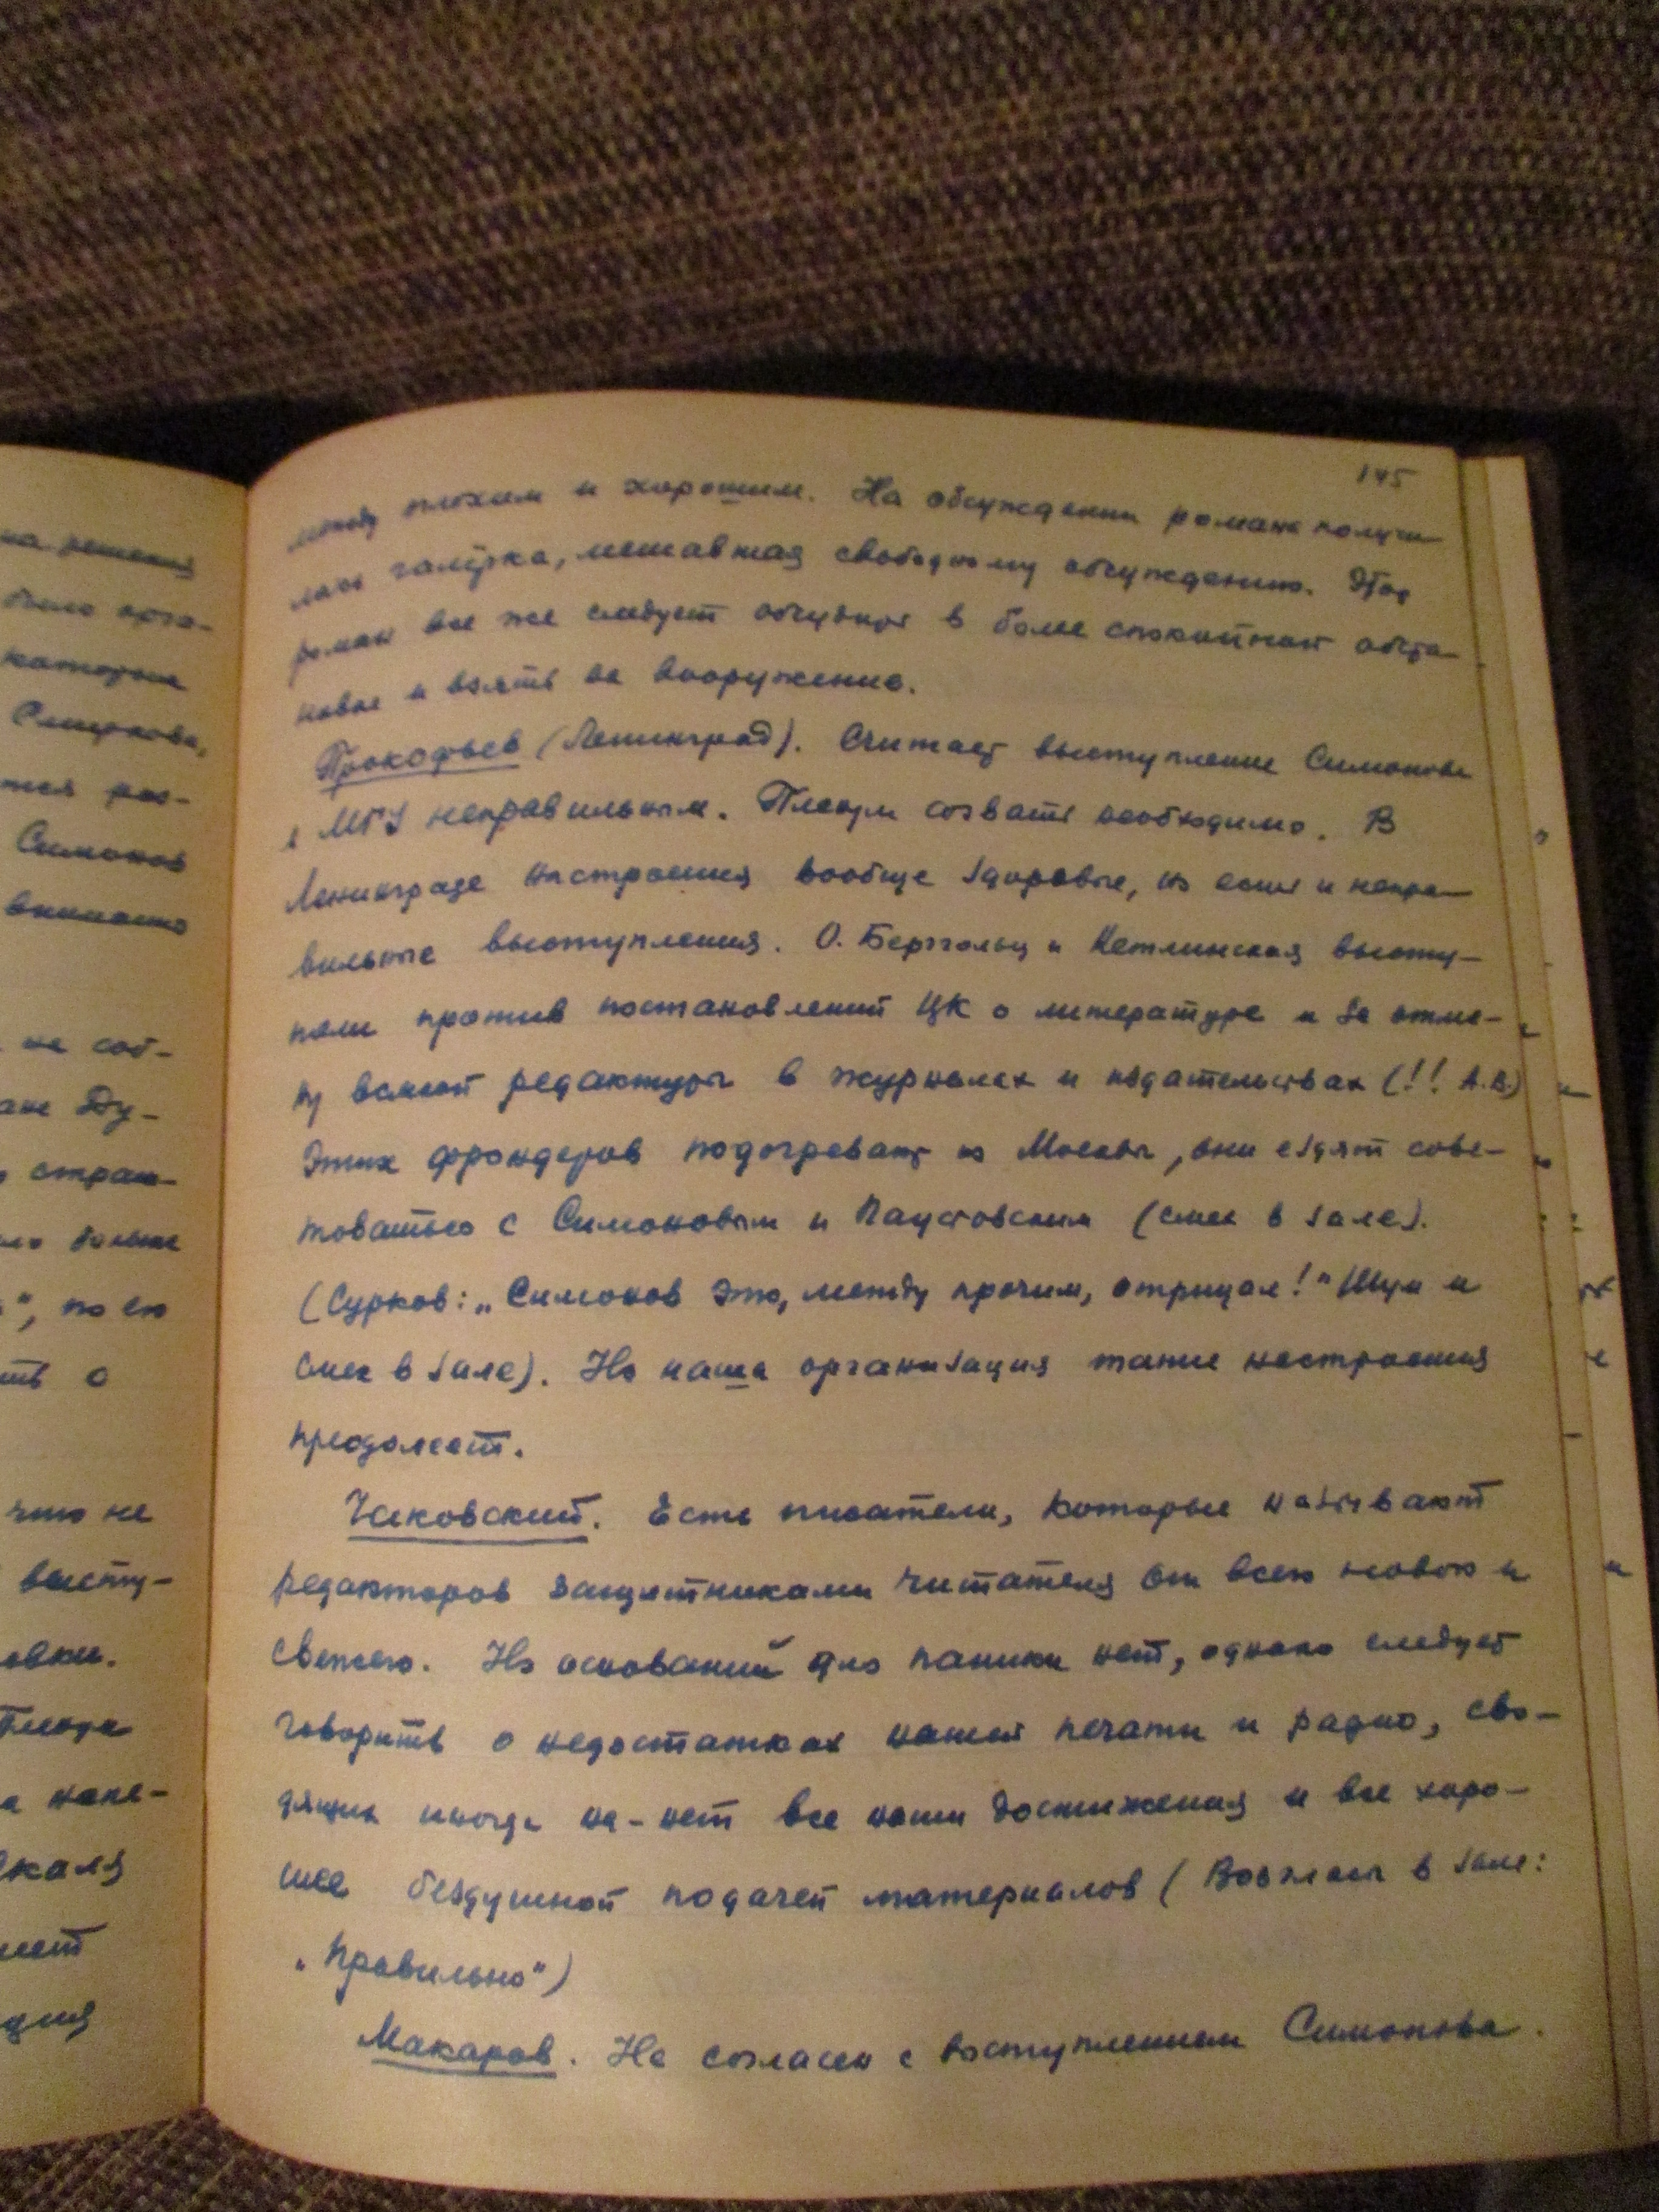 на решения
было орга-
которые
Смирнова,
тся рас-
Симонов
внимание
не соб-
ане Ду-
страш-
больше
", по ею
ть о
что не
высту-
овки.
а напе-
145
между плохим и хорошим. На обсуждении романа получи-
лась галёрка, мешавшая свободному обсуждению. Этот
роман все же следует обсудить в более спокойной обста-
новке и взять на вооружение.
Прокофьев (Ленинград). Считает выступление Симонова
в МГУ неправильным. Пленум созвать необходимо. В
Ленинграде настроения вообще здоровые, но есть и непра-
вильные выступления. О. Берггольц и Кетлинская высту-
пали против постановлений ЦК о литературе и за отме-
ну всякой редактуры в журналах и издательствах (!! А.В.)
Этих фрондеров подогревают из Москвы, они ездят сове-
товаться с Симоновым и Паустовским (смех в зале).
(Сурков: „Симонов это, между прочим, отрицал!" Шум и
смех в зале). Но наша организация такие настроения
преодолеет.
Чаковский. Есть писатели, которые называют
редакторов защитниками читателя от всего нового и
свежего. Но оснований для паники нет, однако следует
говорить о недостатках нашей печати и радио, сво-
дящих иногда на-нет все наши достижения и все хоро-
шее бездушной подачей материалов (Возгласы в зале:
„Правильно")
Макаров. Не согласен с выступлением Симонова.